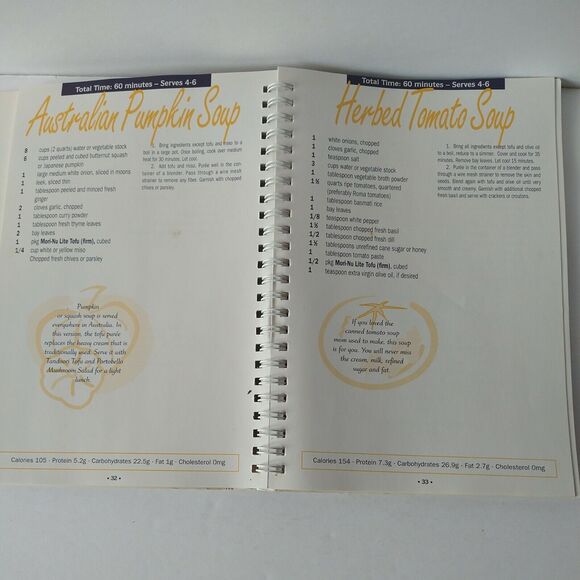 Total Time: 60 minutes – Serves 4-6
Australian Pumpkin Soup
8 cups (2 quarts) water or vegetable stock
6 cups peeled and cubed butternut squash
or Japanese pumpkin
1 large medium white onion, sliced in moons
1 leek, sliced thin
1 tablespoon peeled and minced fresh
ginger
2 cloves garlic, chopped
1 tablespoon curry powder
1 tablespoon fresh thyme leaves
2 bay leaves
1 pkg Mori-Nu Lite Tofu (firm), cubed
1/4 cup white or yellow miso
Chopped fresh chives or parsley
1. Bring ingredients except tofu and miso to a
boil in a large pot. Once boiling, cook over medium
heat for 30 minutes. Let cool.
2. Add tofu and miso. Purée well in the con-
tainer of a blender. Pass through a wire mesh
strainer to remove any fibers. Garnish with chopped
chives or parsley.
Pumpkin
or squash soup is served
everywhere in Australia. In
this version, the tofu purée
replaces the heavy cream that is
traditionally used. Serve it with
Tandoori Tofu and Portobello
Mushroom Salad for a light
lunch.
Calories 105 · Protein 5.2g · Carbohydrates 22.5g · Fat 1g · Cholesterol 0mg
• 32 •
Total Time: 60 minutes – Serves 4-6
Herbed Tomato Soup
1 white onions, chopped
1 cloves garlic, chopped
1 teaspoon salt
3 cups water or vegetable stock
1 tablespoon vegetable broth powder
1 ½ quarts ripe tomatoes, quartered
(preferably Roma tomatoes)
1 tablespoon basmati rice
1 bay leaves
1/8 teaspoon white pepper
1 ½ tablespoon chopped fresh basil
1/2 tablespoon chopped fresh dill
1 ½ tablespoons unrefined cane sugar or honey
1 tablespoon tomato paste
1/2 pkg Mori-Nu Lite Tofu (firm), cubed
1 teaspoon extra virgin olive oil, if desired
1. Bring all ingredients except tofu and olive oil
to a boil, reduce to a simmer. Cover and cook for 35
minutes. Remove bay leaves. Let cool 15 minutes.
2. Purée in the container of a blender and pass
through a wire mesh strainer to remove the skin and
seeds. Blend again with tofu and olive oil until very
smooth and creamy. Garnish with additional chopped
fresh basil and serve with crackers or croutons.
If you loved the
canned tomato soup
mom used to make, this soup
is for you. You will never miss
the cream, milk, refined
sugar and fat.
Calories 154 · Protein 7.3g · Carbohydrates 26.9g · Fat 2.7g · Cholesterol 0mg
• 33 •